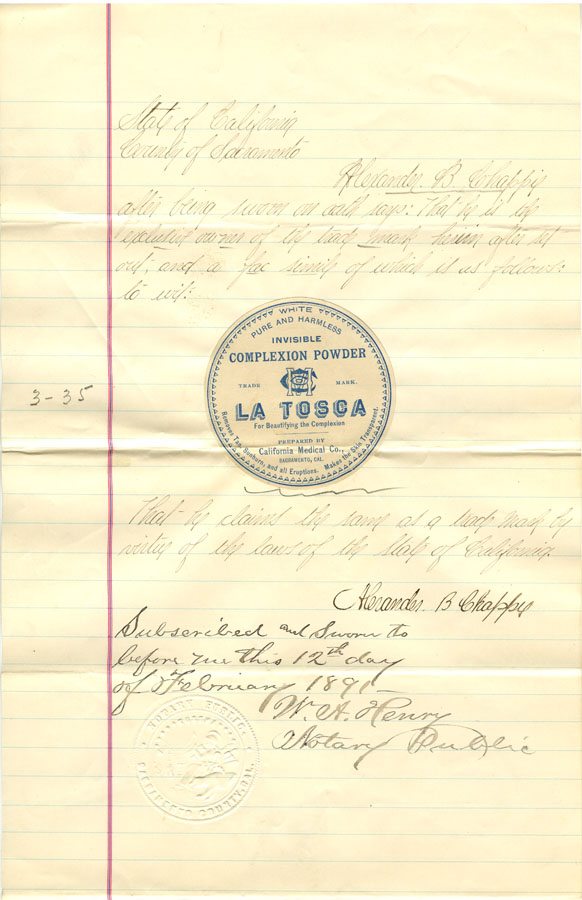 State of California
County of Sacramento
Alexander. B Chappie
after being sworn on oath says: That he is the
exclusive owner of the trade mark herein after set
out; and a fac simile of which is as follows:
to wit:
WHITE
PURE AND HARMLESS
INVISIBLE
COMPLEXION POWDER
TRADE MARK.
LA TOSCA
For Beautifying the Complexion
PREPARED BY
California Medical Co.,
SACRAMENTO, CAL.
Removes Tan, Sunburn, and all Eruptions. Makes the Skin Transparent.
3-35
That he claims the same as a trade mark by
virtue of the laws of the State of California.
Alexander. B Chappie
Subscribed and Sworn to
before me this 12th day
of February 1891-
W. A. Henry
Notary Public
NOTARY PUBLIC
SACRAMENTO COUNTY, CAL.